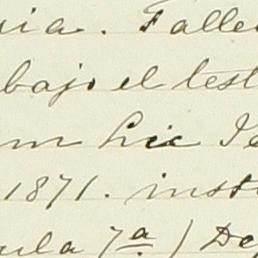 ria. Falle
bajo el test
m Lic Ig
1871. inst
ula 7ª) De